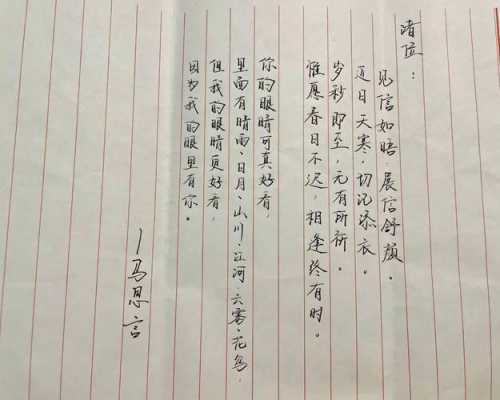 诸位：
见信如晤，展信舒颜。
近日天寒，切记添衣。
岁秒即至，元有所祈。
惟愿春日不迟，相逢终有时。
你的眼睛可真好看，
里面有晴雨、日月、山川、江河、云雾、花鸟，
但我的眼睛更好看，
因为我的眼里有你。
—马恩言